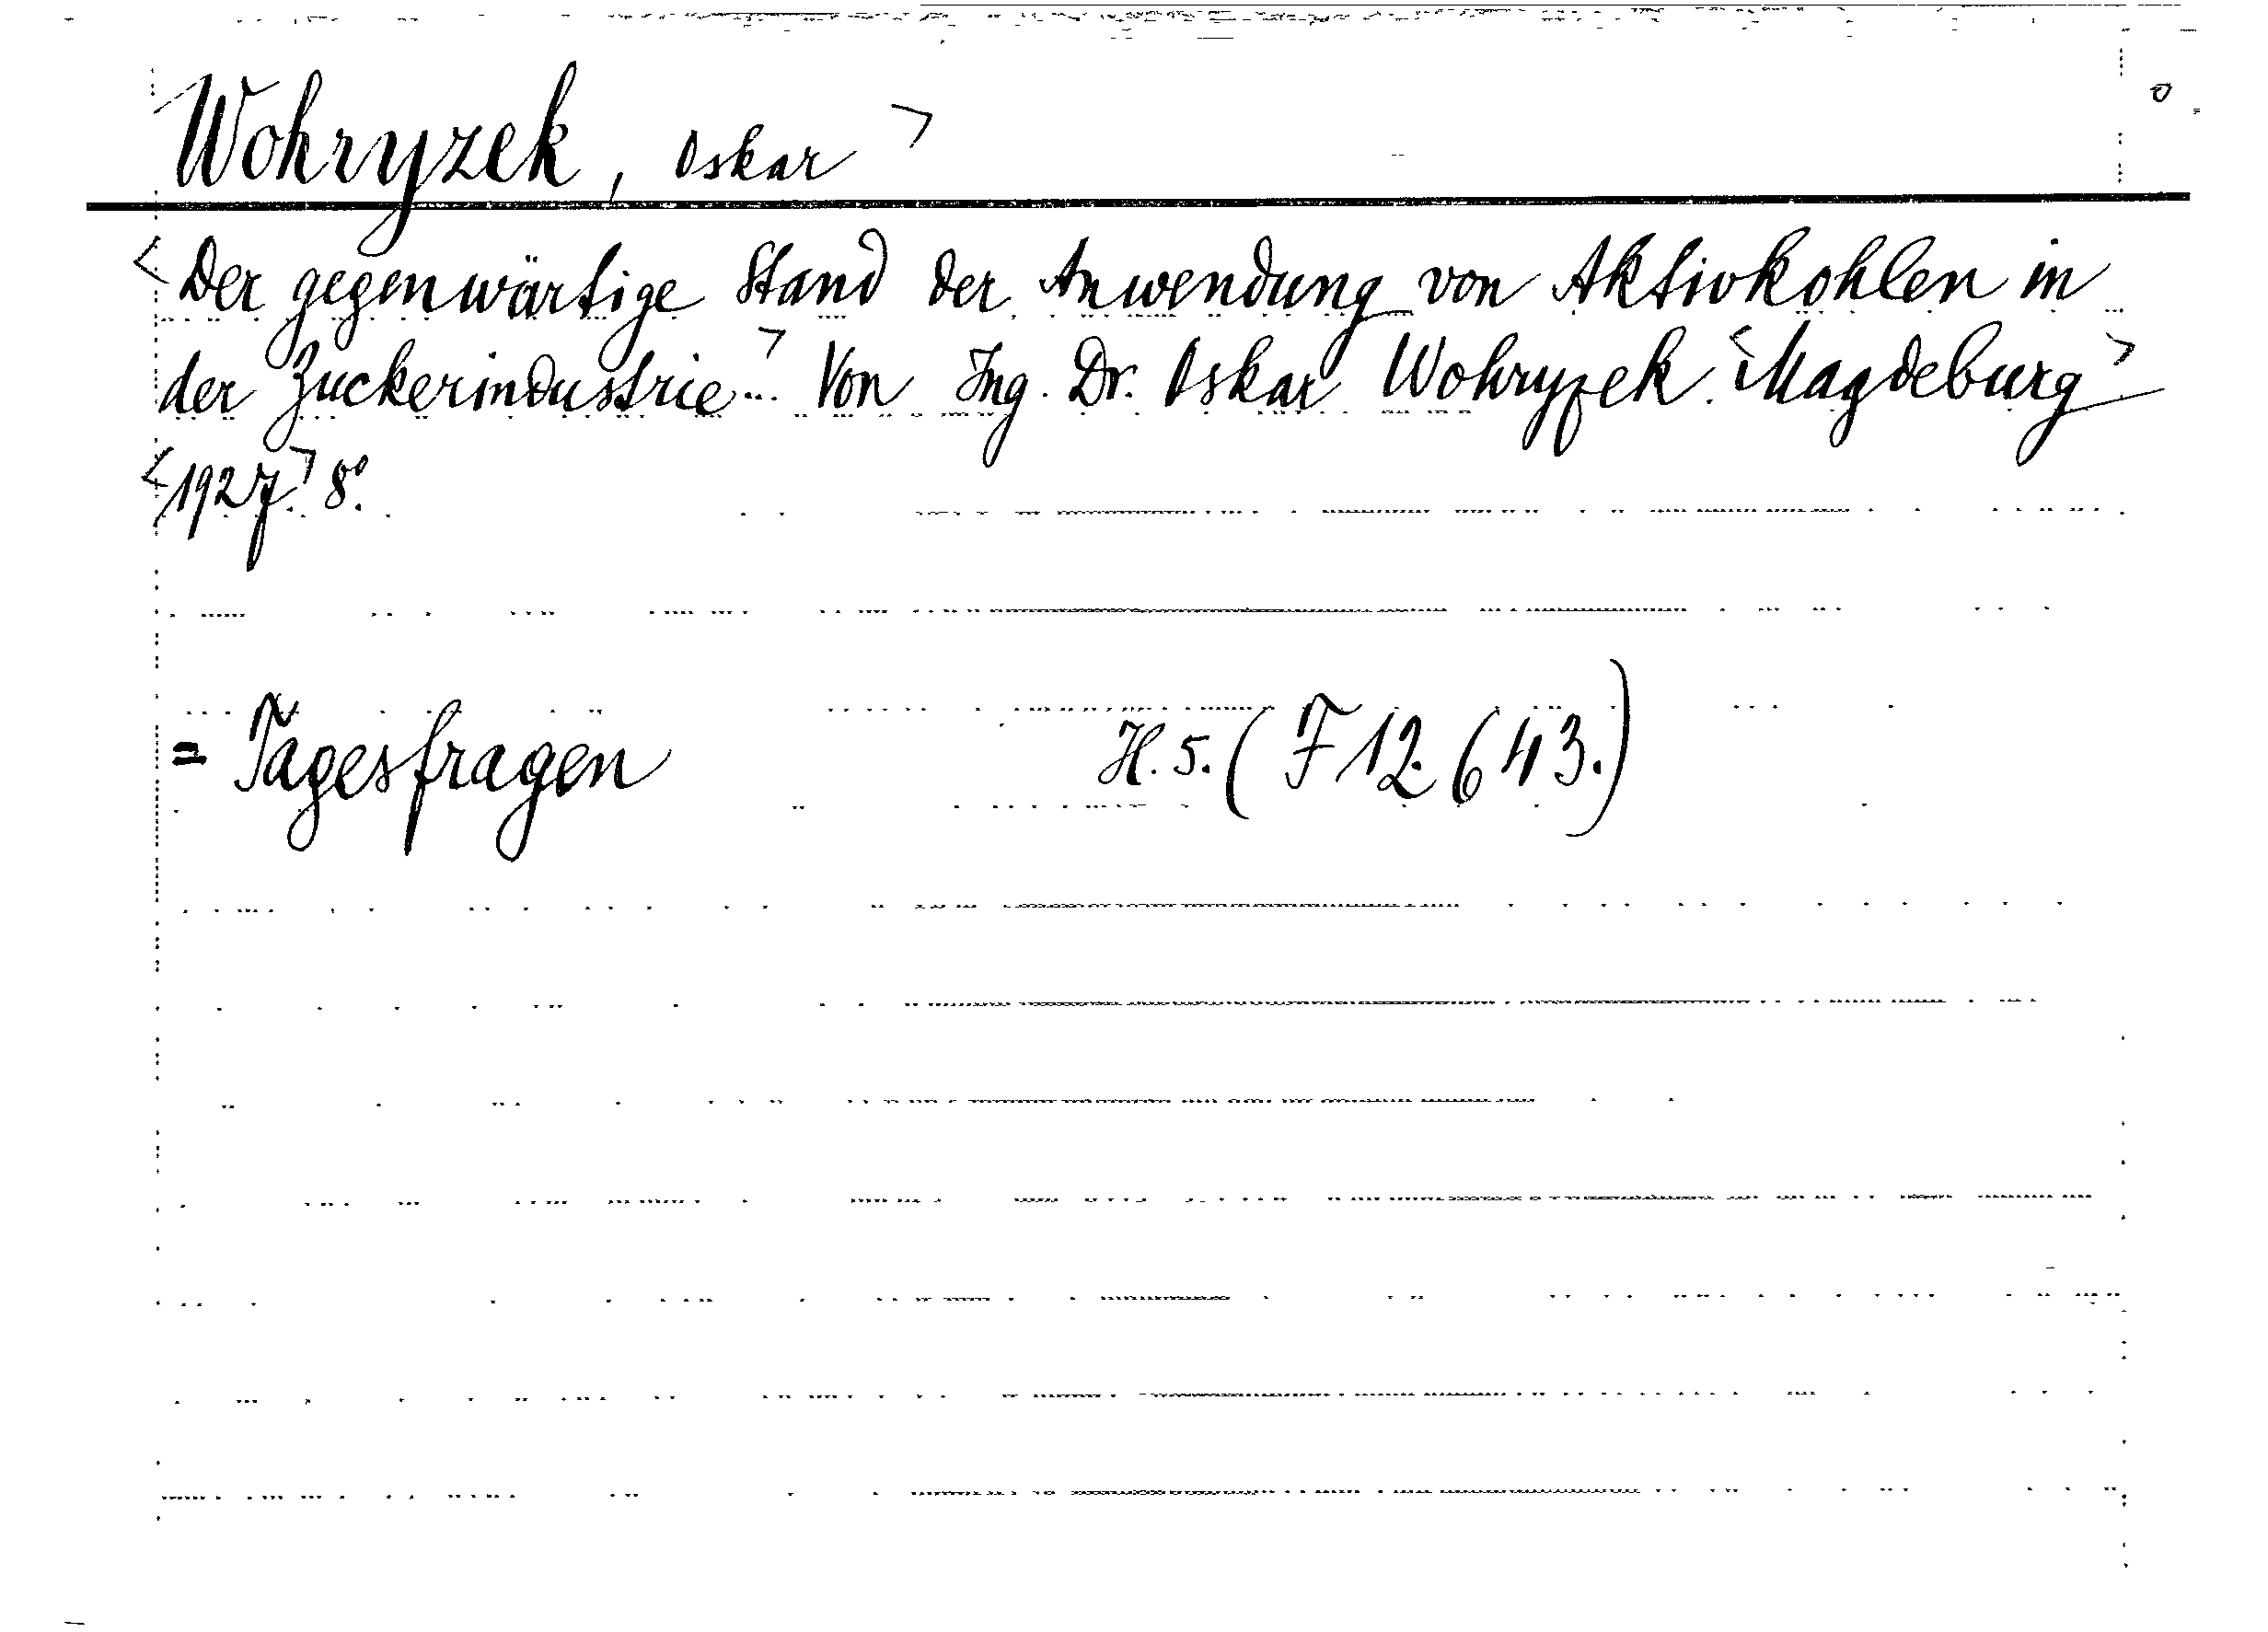 Wohryzek, Oskar >
< Der gegenwärtige Stand der Anwendung von Aktivkohlen in
der Zuckerindustrie.> Von Ing. Dr. Oskar Wohryzek. <Magdeburg>
<1927.> 8°.
= Tagesfragen H. 5. (F 12.643.)